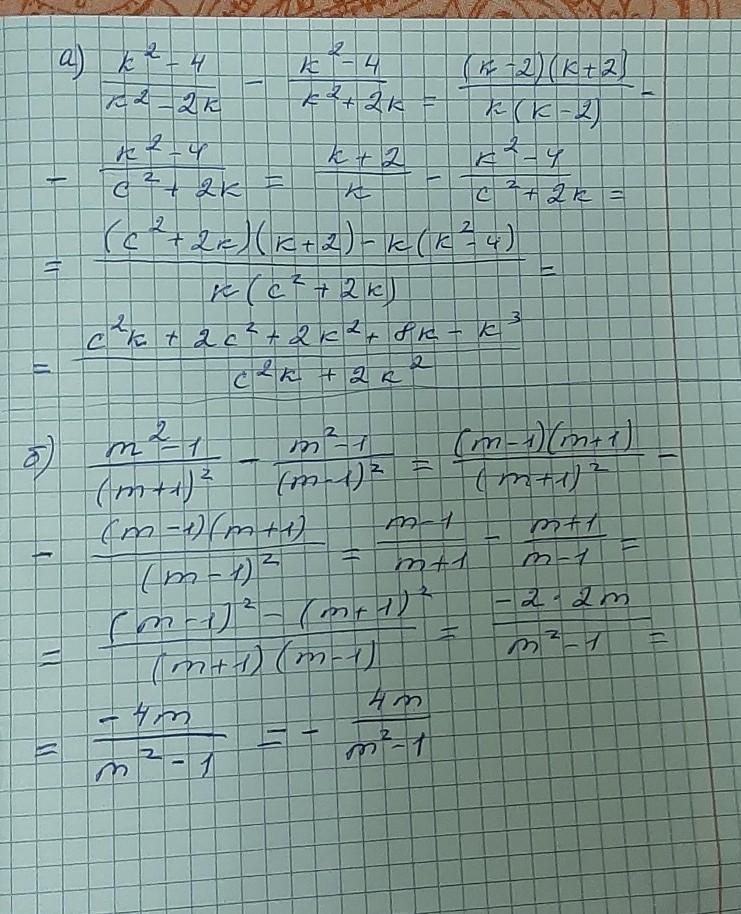 а) (k² - 4)/(k² - 2k) - (k² - 4)/(k² + 2k) = ((k - 2)(k + 2))/(k(k - 2)) -
- (k² - 4)/(c² + 2k) = (k + 2)/k - (k² - 4)/(c² + 2k) =
= ((c² + 2k)(k + 2) - k(k² - 4))/(k(c² + 2k)) =
= (c²k + 2c² + 2k² + 8k - k³)/(c²k + 2k²)
б) (m² - 1)/(m + 1)² - (m² - 1)/(m - 1)² = ((m - 1)(m + 1))/(m + 1)² -
- ((m - 1)(m + 1))/(m - 1)² = (m - 1)/(m + 1) - (m + 1)/(m - 1) =
= ((m - 1)² - (m + 1)²)/((m + 1)(m - 1)) = (-2 · 2m)/(m² - 1) =
= (-4m)/(m² - 1) = - 4m/(m² - 1)